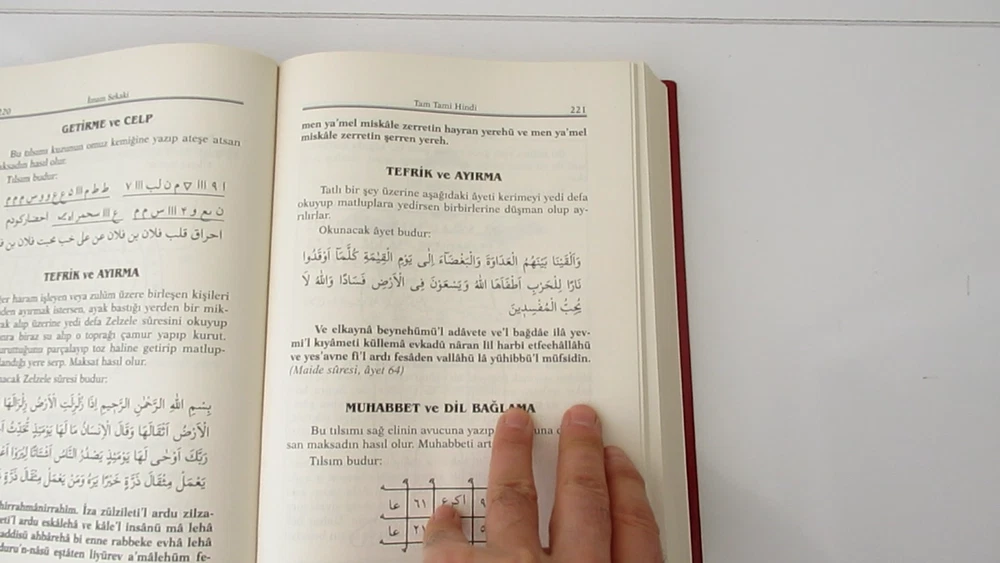 220
İmam Sekaki
GETİRME ve CELP
Bu tılsımı kuzunun omuz kemiğine yazıp ateşe atsan
maksadın hasıl olur.
Tılsım budur:
احراق قلب فلان بن فلان عن على حب محبت فلان بن
TEFRİK ve AYIRMA
haram işleyen veya zulüm üzere birleşen kişileri
ayırmak istersen, ayak bastığı yerden bir mik-
alıp üzerine yedi defa Zelzele sûresini okuyup
biraz su alıp o toprağı çamur yapıp kurut.
parçalayıp toz haline getirip matlup-
yere serp. Maksat hasıl olur.
Zelzele sûresi budur:
بِسْمِ اللّٰهِ الرَّحْمٰنِ الرَّحِيمِ اِذَا زُلْزِلَتِ الْاَرْضُ زِلْزَالَهَا
الْاَرْضُ اَثْقَالَهَا وَقَالَ الْاِنْسَانُ مَا لَهَا يَوْمَئِذٍ تُحَدِّثُ
رَبَّكَ اَوْحٰى لَهَا يَوْمَئِذٍ يَصْدُرُ النَّاسُ اَشْتَاتًا لِيُرَوْا
يَعْمَلْ مِثْقَالَ ذَرَّةٍ خَيْرًا يَرَهُ وَمَنْ يَعْمَلْ مِثْقَالَ ذَرَّةٍ
İza zülzileti'l ardu zilza-
ardu eskâlehâ ve kâle'l insânü mâ lehâ
ahbârehâ bi enne rabbeke evhâ lehâ
eştâten liyürev a'mâlehüm fe-
Tam Tami Hindi
221
men ya'mel miskâle zerretin hayran yerehü ve men ya'mel
miskâle zerretin şerren yereh.
TEFRİK ve AYIRMA
Tatlı bir şey üzerine aşağıdaki âyeti kerimeyi yedi defa
okuyup matluplara yedirsen birbirlerine düşman olup ay-
rılırlar.
Okunacak âyet budur:
وَاَلْقَيْنَا بَيْنَهُمُ الْعَدَاوَةَ وَالْبَغْضَاءَ اِلٰى يَوْمِ الْقِيٰمَةِ كُلَّمَا اَوْقَدُوا
نَارًا لِلْحَرْبِ اَطْفَاَهَا اللّٰهُ وَيَسْعَوْنَ فِى الْاَرْضِ فَسَادًا وَاللّٰهُ لَا
يُحِبُّ الْمُفْسِدِينَ
Ve elkaynâ beynehümü'l adâvete ve'l bağdâe ilâ yev-
mi'l kıyâmeti küllemâ evkadû nâran lil harbi etfeehâllâhü
ve yes'avne fi'l ardı fesâden vallâhü lâ yühibbü'l müfsidîn.
(Maide sûresi, âyet 64)
MUHABBET ve DİL BAĞLAMA
Bu tılsımı sağ elinin avucuna yazıp
san maksadın hasıl olur. Muhabbeti
Tılsım budur:
عا ٦١ اكرع ٩
عا